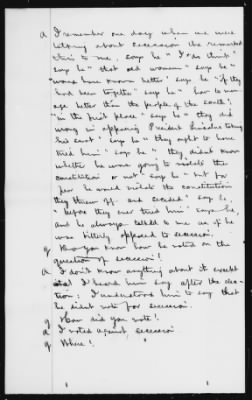 a I remember one day when we were
talking about secession he remarked
this to me, says he "I do think"
says he "that old women" says he
"would have known better" says he "if they
had been together" says he "how to man-
age better than the people of the South:
"in the first place" says he "they did
wrong in opposing President Lincoln taking
his seat" says he "they ought to have
tried him" says he "they didn't know
whether he was going to violate the
constitution or not" says he "but for
fear he would violate the constitution
they threw off and seceded" says he
"before they ever tried him" says he,
and he always talked to me as if he
was bitterly opposed to secession.
q Do you know how he voted on the
question of secession?
a I don't know anything about it except
I heard him say after the elec-
tion: I understood him to say that
he didn't vote for secession.
q How did you vote?
a I voted against secession
q Where?